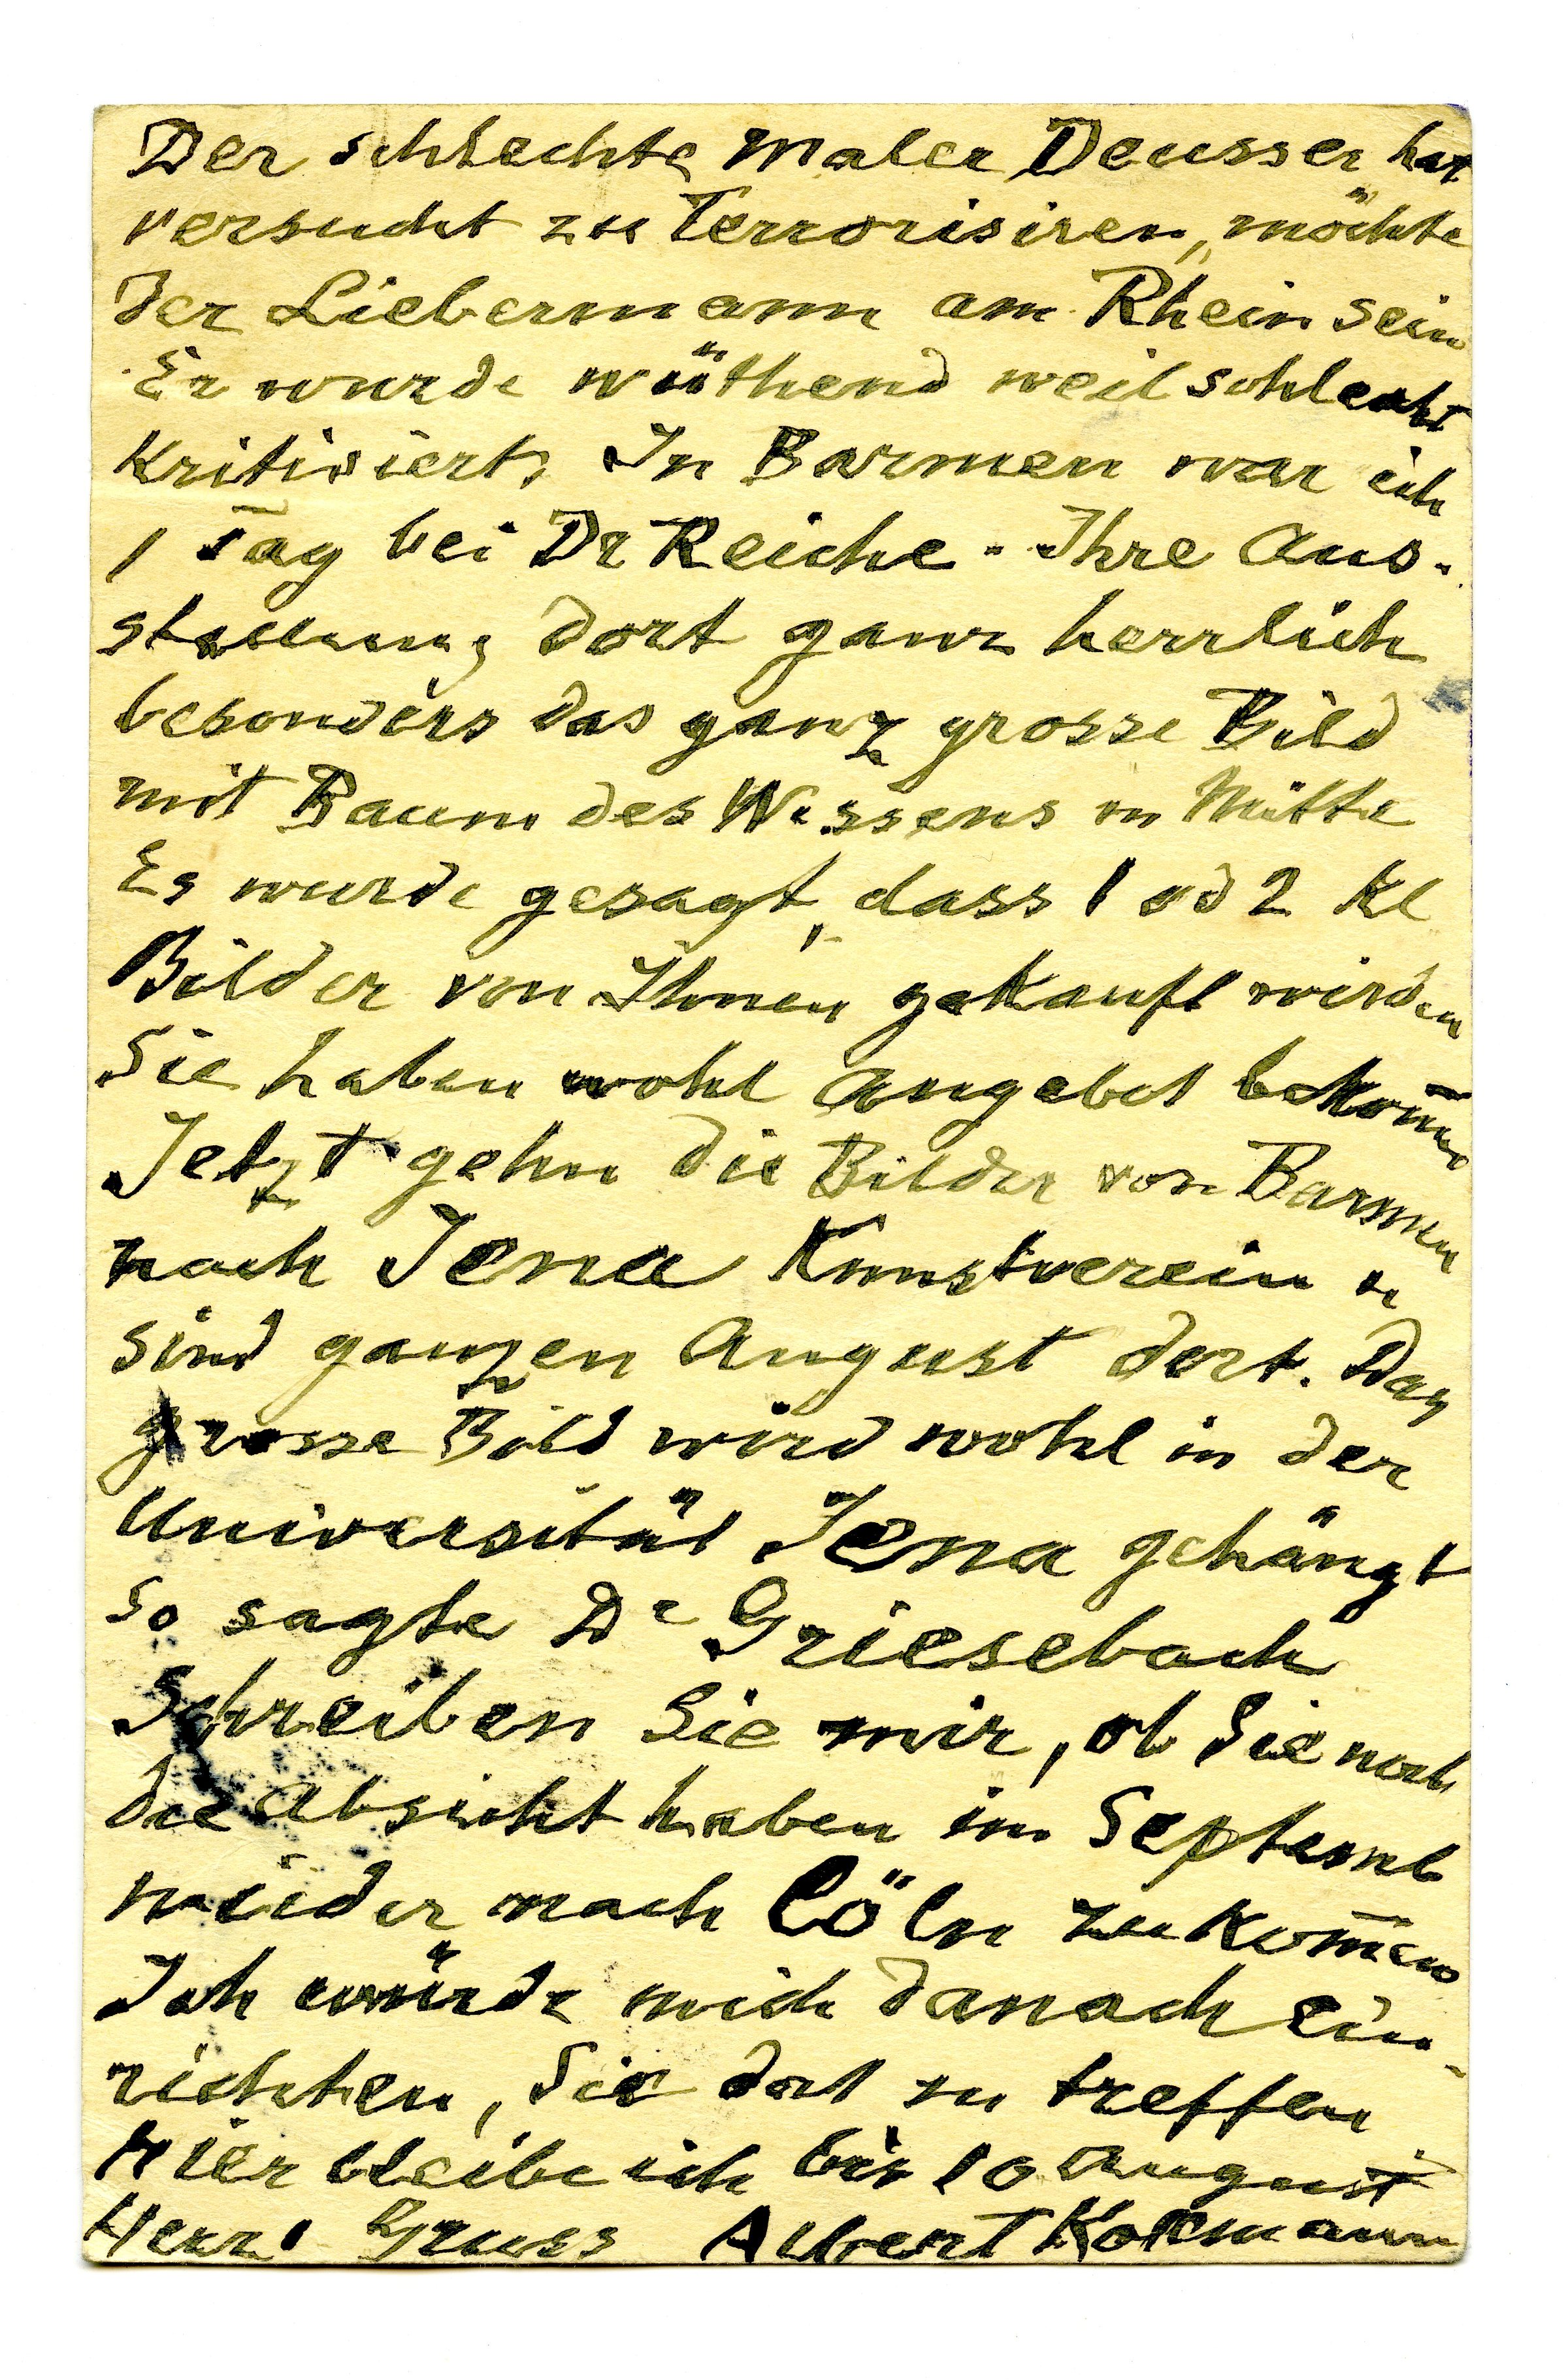 Der schlechte Maler Deusser hat
versucht zu Terrorisiren, möchte
der Liebermann am Rhein sein
Er wurde wüthend weil schlecht
Kritisiert. In Barmen war ich
1 Tag bei Dr Reiche. Ihre Aus-
stellung dort ganz herrlich
besonders das ganz grosse Bild
mit Baum des Wissens in Mitte
Es wurde gesagt, dass 1 od 2 Kl
Bilder von Ihnen gekauft wirden
Sie haben wohl Angebot bekom̄en
Jetzt gehn die Bilder von Barmen
nach Jena Kunstverein u
sind ganzen August dort. Das
grosse Bild wird wohl in der
Universität Jena gehängt
so sagte Dr Griesebach
Schreiben Sie mir, ob Sie noch
die Absicht haben im Septemb
wieder nach Cöln zu kom̄en
Ich würde mich danach ein-
richten, Sie dort zu treffen
Hier bleibe ich bis 10 August
Herzl Gruss Albert Kollmann